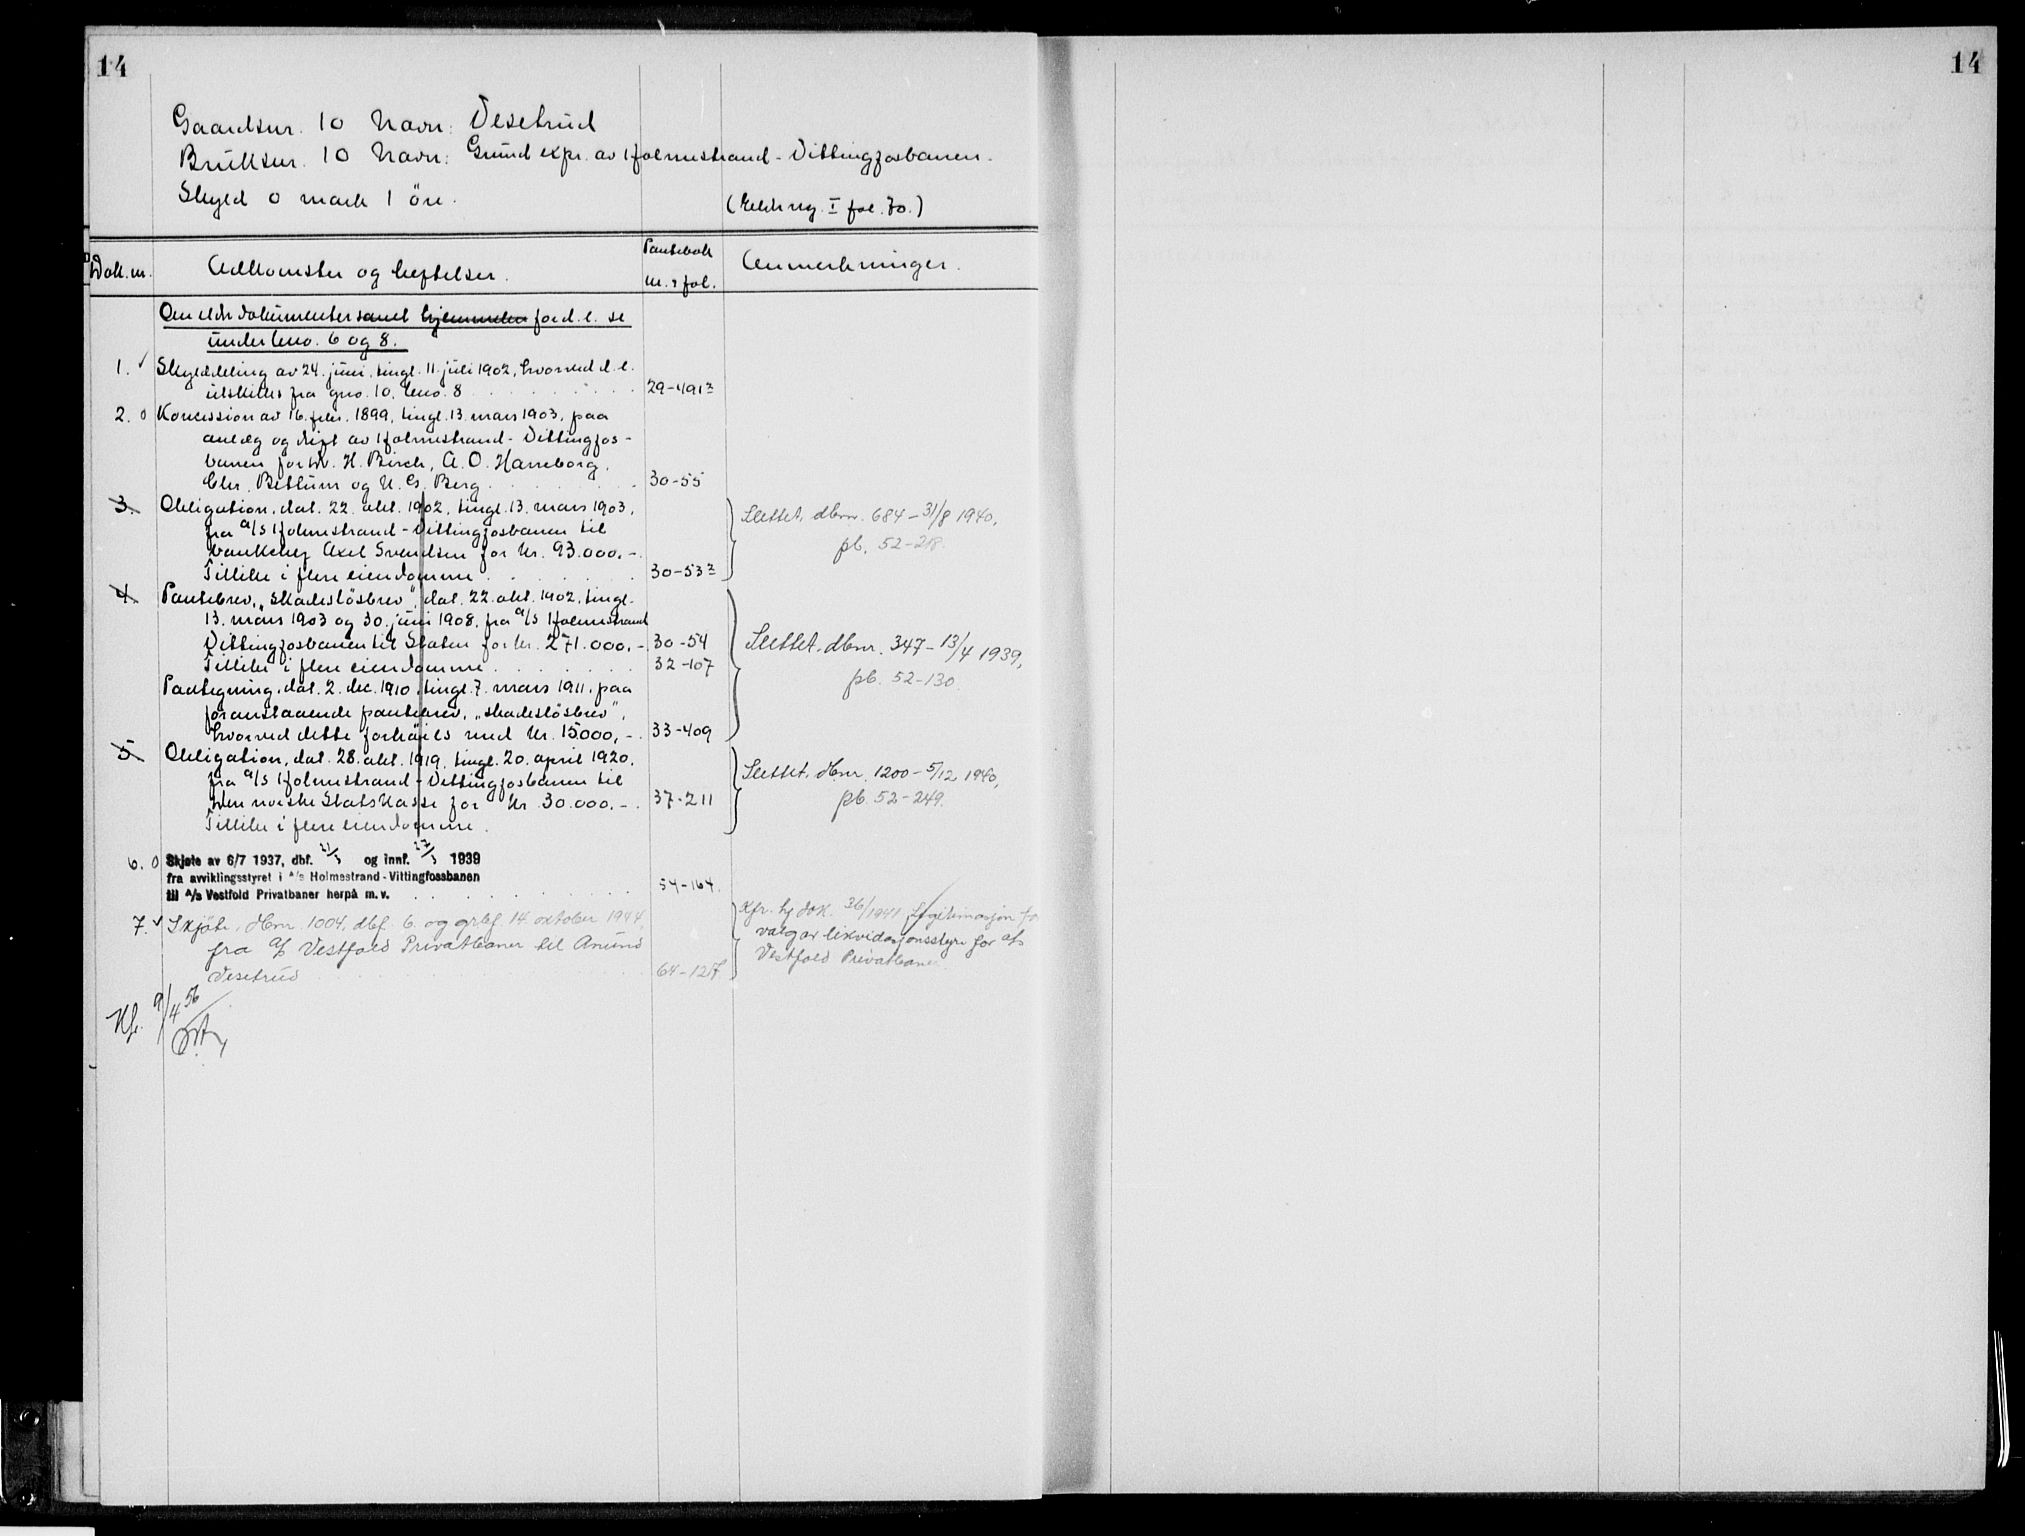 14
14
Gaardsnr. 10 Navn: Vesetrud
Bruksnr. 10 Navn: Grund expr. av Holmestrand-Vittingfosbanen.
Skyld 0 mark 1 öre.
(Eldr. reg. I fol. 70.)
Dok. nr. Adkomster og heftelser. Pantebok nr. & fol. Anmerkninger.
Om eldr. dokumenter samt hjemmelen for d. e. se
under bno. 6 og 8.
1. Skylddeling av 24. juni, tingl. 11. juli 1902, hvorved d. e.
utskilles fra gno. 10, bno. 8 29-491
2. Koncession av 16. febr. 1899, tingl. 13. mars 1903, paa
anlæg og drift av Holmestrand-Vittingfos-
banen for H. Birch, A. O. Harreborg,
Chr. Bettum og N. G. Berg 30-55
3. Obligation, dat. 22. okt. 1902, tingl. 13. mars 1903,
fra A/S Holmestrand-Vittingfosbanen til
bankchef Axel Svendsen for kr. 93.000.-
Tillike i flere eiendomme 30-53
Slettet, dbnr. 684-31/8 1940,
pb. 52-218.
4. Pantebrev, „skadesløsbrev", dat. 22. okt. 1902, tingl.
13. mars 1903 og 30. juni 1908, fra A/S Holmestrand
Vittingfosbanen til Staten for kr. 271.000.- 30-54
Tillike i flere eiendomme 32-107
Paategning, dat. 2. dec. 1910, tingl. 7. mars 1911, paa
foranstaaende pantebrev, „skadesløsbrev",
hvorved dette forhöies med kr. 15000,- 33-409
Slettet, dbnr. 347-13/4 1939,
pb. 52-130.
5. Obligation, dat. 28. okt. 1919, tingl. 20. april 1920,
fra A/S Holmestrand-Vittingfosbanen til
den norske Statskasse for kr. 30.000.- 37-211
Tillike i flere eiendomme.
Slettet, dbnr. 1200-5/12 1940,
pb. 52-249.
6. Skjøte av 6/7 1937, dbf. 21/3 og innf. 27/3 1939
fra avviklingsstyret i A/s Holmestrand-Vittingfossbanen
til A/s Vestfold Privatbaner herpå m. v. 54-164.
7. Skjöte, dbnr. 1004, dbf. 6. og grbf. 14. oktober 1944,
fra A/S Vestfold Privatbaner til Anund
Vesetrud 64-127
Kfr. hj. dok. 36/1941 Legitimasjon for
valg av likvidasjonsstyre for A/S
Vestfold Privatbaner
Kf. 9/4 56